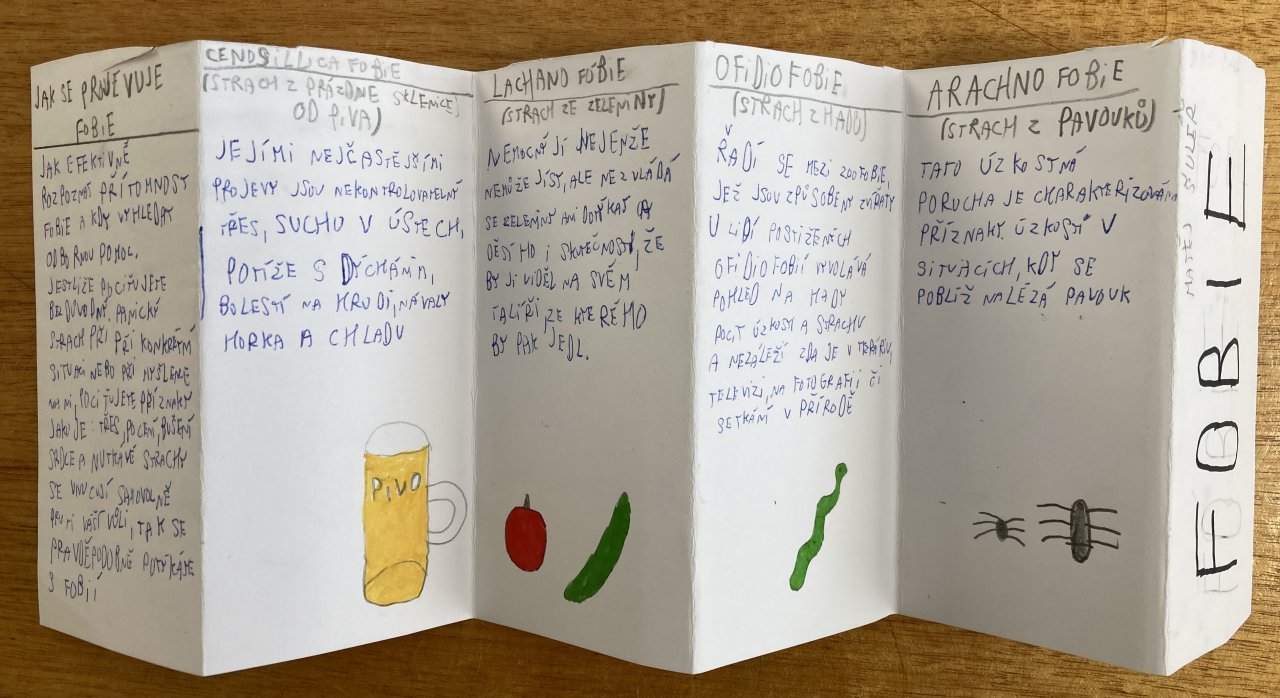 JAK SE PROJEVUJE
FOBIE
JAK EFEKTIVNĚ
ROZPOZNAT PŘÍTOMNOST
FOBIE A KDY VYHLEDAT
ODBORNOU POMOC.
JESTLIŽE POCIŤUJETE
BEZDŮVODNÝ, PANICKÝ
STRACH PŘI PŘI KONKRÉTNÍ
SITUACI NEBO PŘI MYŠLENCE
NA NI, POCIŤUJETE PŘÍZNAKY
JAKO JE: TŘES, POCENÍ, BUŠENÍ
SRDCE A NUTKAVÉ STRACHY
SE VNUCUJÍ SAMOVOLNĚ
PROTI VAŠÍ VŮLI, TAK SE
PRAVDĚPODOBNĚ POTÝKÁTE
S FOBIÍ
CENOSILLICAFOBIE
(STRACH Z PRÁZDNE SKLENICE)
OD PIVA)
JEJÍMI NEJČASTĚJŠÍMI
PROJEVY JSOU NEKONTROLOVATELNÝ
TŘES, SUCHO V ÚSTECH,
POTÍŽE S DÝCHÁNÍM,
BOLESTÍ NA HRUDI, NÁVALY
HORKA A CHLADU
PIVO
LACHANO FOBIE
(STRACH ZE ZELENINY)
NEMOCNÝ JÍ NEJENŽE
NEMŮŽE JÍST, ALE NEZVLÁDÁ
SE ZELENINY ANI DOTÝKAT A
DĚSÍ HO I SKUTEČNOST, ŽE
BY JI VIDĚL NA SVÉM
TALÍŘI, ZE KTERÉHO
BY PAK JEDL.
OFIDIOFOBIE
(STRACH Z HADŮ)
ŘADÍ SE MEZI ZOOFOBIE,
JEŽ JSOU ZPŮSOBENY ZVÍŘATY
U LIDÍ POSTIŽENÍCH
OFIDIOFOBIÍ VYVOLÁVÁ
POHLED NA HADY
POCIT ÚZKOSTI A STRACHU
A NEZÁLEŽÍ ZDA JE V TERÁRIU,
TELEVIZI, NA FOTOGRAFII ČI
SETKÁNÍ V PŘÍRODĚ
ARACHNO FOBIE
(STRACH Z PAVOUKŮ)
TATO ÚZKOSTNÁ
PORUCHA JE CHARAKTERIZOVÁNA
PŘÍZNAKY ÚZKOSTI V
SITUACÍCH, KDY SE
POBLÍŽ NALÉZÁ PAVOUK
FOBIE
MATĚJ